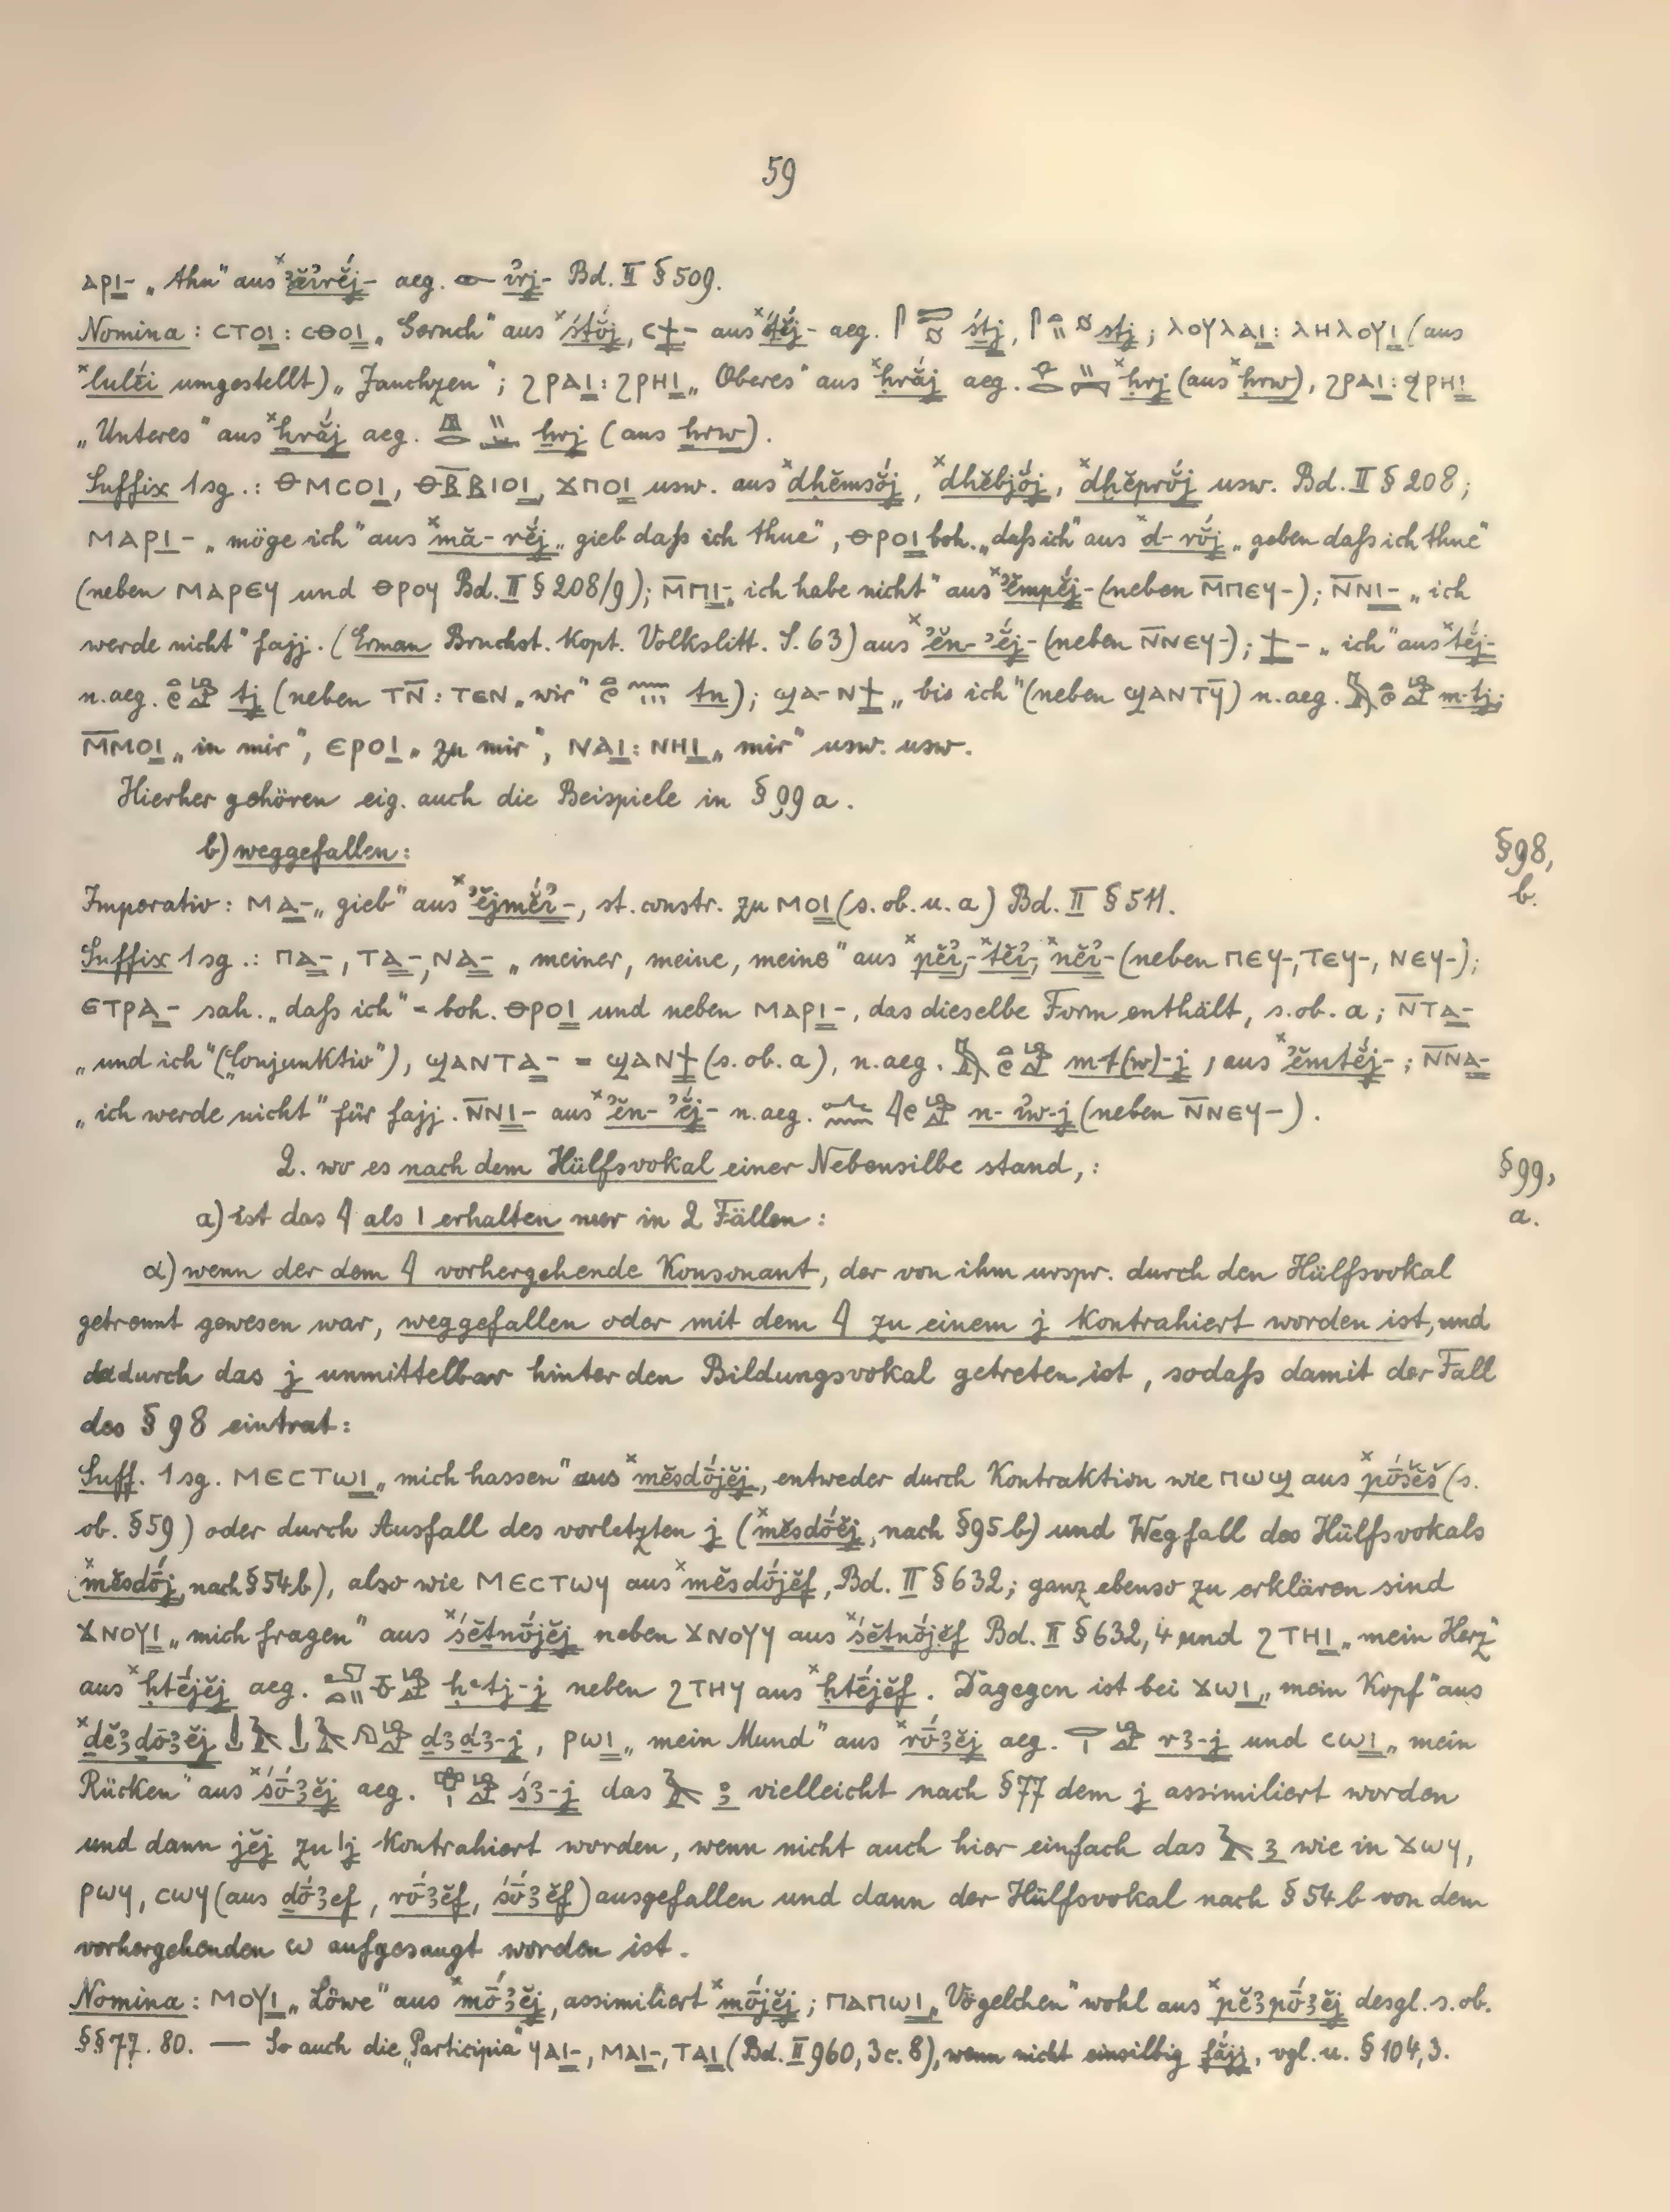 59
ⲁⲣⲓ- „thu“ aus ˣꜣĕi҆rĕ́j- aeg. 𓁹 i҆rj- Bd. II § 509.
Nomina: ⲥⲧⲟⲓ: ⲥⲑⲟⲓ „Geruch“ aus ˣśtŏ́j, ⲥϯ- aus - aeg. śtj, stj; ⲗⲟⲩⲗⲁⲓ: ⲗⲏⲗⲟⲩⲓ (aus
ˣlulĕ́i umgestellt) „Jauchzen“; ϩⲣⲁⲓ: ϩⲣⲏⲓ „Oberes“ aus ˣḥrắj aeg. ˣḥrj (aus ˣḥrw), ϩⲣⲁⲓ: ϧⲣⲏⲓ
„Unteres“ aus ˣẖrắj aeg. ẖrj (aus ẖrw).
Suffix 1 sg.: ⲑⲙⲥⲟⲓ, ⲑⲃ̅ⲃ̅ⲓⲟⲓ, ϫⲡⲟⲓ usw. aus ˣdḥĕmsŏ́j, ˣdḥĕbjŏ́j, ˣdḫĕprŏ́j usw. Bd. II § 208;
ⲙⲁⲣⲓ- „möge ich“ aus ˣmă-rĕ́j „gieb daſs ich thue“, ⲑⲣⲟⲓ boh. „daſs ich“ aus ˣd-rŏ́j „geben daſs ich thue“
(neben ⲙⲁⲣⲉϥ und ⲑⲣⲟϥ Bd. II § 208/9); ⲙ̅ⲡⲓ- „ich habe nicht“ aus ˣʾĕmpĕ́j- (neben ⲙ̅ⲡⲉϥ-); ⲛ̅ⲛⲓ- „ich
werde nicht“ fajj. (Erman Bruchst. kopt. Volkslitt. S. 63) aus ˣʾĕn-ʾĕ́j- (neben ⲛ̅ⲛⲉϥ-); ϯ- „ich“ aus ˣtĕ́j-
n.aeg. 𓏏𓏲𓀁 tj (neben ⲧⲛ̅: ⲧⲉⲛ „wir“ tn); ϣⲁ-ⲛϯ „bis ich“ (neben ϣⲁⲛⲧϥ̅) n.aeg. m-tj;
ⲙ̅ⲙⲟⲓ „in mir“, ⲉⲣⲟⲓ „zu mir“, ⲛⲁⲓ: ⲛⲏⲓ „mir“ usw. usw.
Hierher gehören eig. auch die Beispiele in § 99 a.
b) weggefallen: § 98, b.
Imperativ: ⲙⲁ- „gieb“ aus ˣʾĕjmĕ́i҆-, st. constr. zu ⲙⲟⲓ (s. ob. u. a) Bd. II § 511.
Suffix 1 sg.: ⲡⲁ-, ⲧⲁ-, ⲛⲁ- „meiner, meine, meine“ aus ˣpĕi҆-, ˣtĕi҆-, ˣnĕi҆- (neben ⲡⲉϥ-, ⲧⲉϥ-, ⲛⲉϥ-);
ⲉⲧⲣⲁ- sah. „daſs ich“ = boh. ⲑⲣⲟⲓ und neben ⲙⲁⲣⲓ-, das dieselbe Form enthält, s. ob. a; ⲛ̅ⲧⲁ-
„und ich“ („Conjunktiv“), ϣⲁⲛⲧⲁ- = ϣⲁⲛϯ (s. ob. a), n.aeg. m-t(w)-j, aus ˣʾĕmtĕ́j-; ⲛ̅ⲛⲁ-
„ich werde nicht“ für fajj. ⲛ̅ⲛⲓ- aus ˣʾĕn-ʾĕ́j- n.aeg. n-i҆w-j (neben ⲛ̅ⲛⲉϥ-).
2. wo es nach dem Hülfsvokal einer Nebensilbe stand,: § 99, a.
a) ist das 𓇋 als ⲓ erhalten nur in 2 Fällen:
α) wenn der dem 𓇋 vorhergehende Konsonant, der von ihm urspr. durch den Hülfsvokal
getrennt gewesen war, weggefallen oder mit dem 𓇋 zu einem j kontrahiert worden ist, und
dadurch das j unmittelbar hinter den Bildungsvokal getreten ist, sodaſs damit der Fall
des § 98 eintrat:
Suff. 1 sg. ⲙⲉⲥⲧⲱⲓ „mich hassen“ aus ˣmĕsdṓjĕj, entweder durch Kontraktion wie ⲡⲱϣ aus ˣpṓšĕš (s.
ob. § 59) oder durch Ausfall des vorletzten j (ˣmĕsdṓĕj, nach § 95 b) und Wegfall des Hülfsvokals
(ˣmĕsdṓj, nach § 54 b), also wie ⲙⲉⲥⲧⲱϥ aus ˣmĕsdṓjĕf, Bd. II § 632; ganz ebenso zu erklären sind
ϫⲛⲟⲩⲓ „mich fragen“ aus ˣśĕṯnṓjĕj neben ϫⲛⲟⲩϥ aus ˣśĕṯnṓjĕf Bd. II § 632, 4 und ϩⲧⲏⲓ „mein Herz“
aus ˣḥtḗjĕj aeg. ḥꜥtj-j neben ϩⲧⲏϥ aus ˣḥtḗjĕf. Dagegen ist bei ϫⲱⲓ „mein Kopf“ aus
ˣḏĕꜣḏṓꜣĕj ḏꜣḏꜣ-j, ⲣⲱⲓ „mein Mund“ aus ˣrṓꜣĕj aeg. rꜣ-j und ⲥⲱⲓ „mein
Rücken“ aus ˣśṓꜣĕj aeg. śꜣ-j das 𓄿 ꜣ vielleicht nach § 77 dem j assimiliert worden
und dann jĕj zu j kontrahiert worden, wenn nicht auch hier einfach das 𓄿 ꜣ wie in ϫⲱϥ,
ⲣⲱϥ, ⲥⲱϥ (aus ḏṓꜣef, rṓꜣĕf, śṓꜣĕf) ausgefallen und dann der Hülfsvokal nach § 54 b von dem
vorhergehenden ⲱ aufgesaugt worden ist.
Nomina: ⲙⲟⲩⲓ „Löwe“ aus ˣmṓꜣĕj, assimiliert ˣmṓjĕj; ⲡⲁⲡⲱⲓ „Vögelchen“ wohl aus ˣpĕꜣpṓꜣĕj desgl. s. ob.
§§ 77. 80. — So auch die „Participia“ ϥⲁⲓ-, ⲙⲁⲓ-, ⲧⲁⲓ (Bd. II 960, 3 c. 8), wenn nicht einsilbig fắjj, vgl. u. § 104, 3.